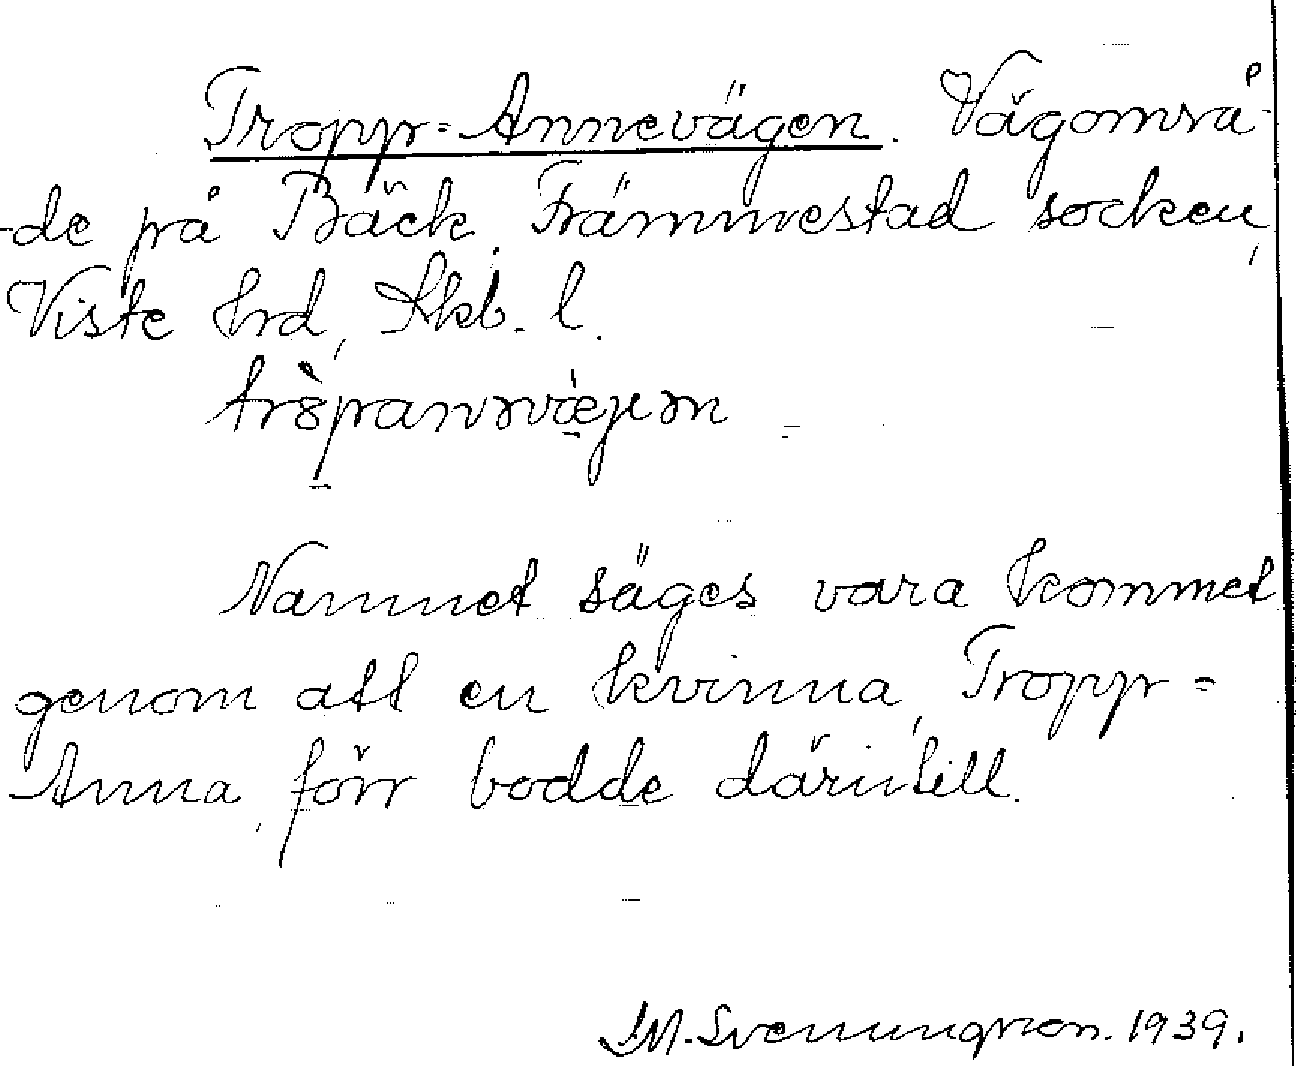 Tropp-Annevägen. Vägområ-
de på Bäck, Främmestad socken,
Viste hrd, Skb. l.
Namnet säges vara kommet
genom att en kvinna, Tropp-
Anna, förr bodde därintill.
J.M. Svenungsson. 1939.